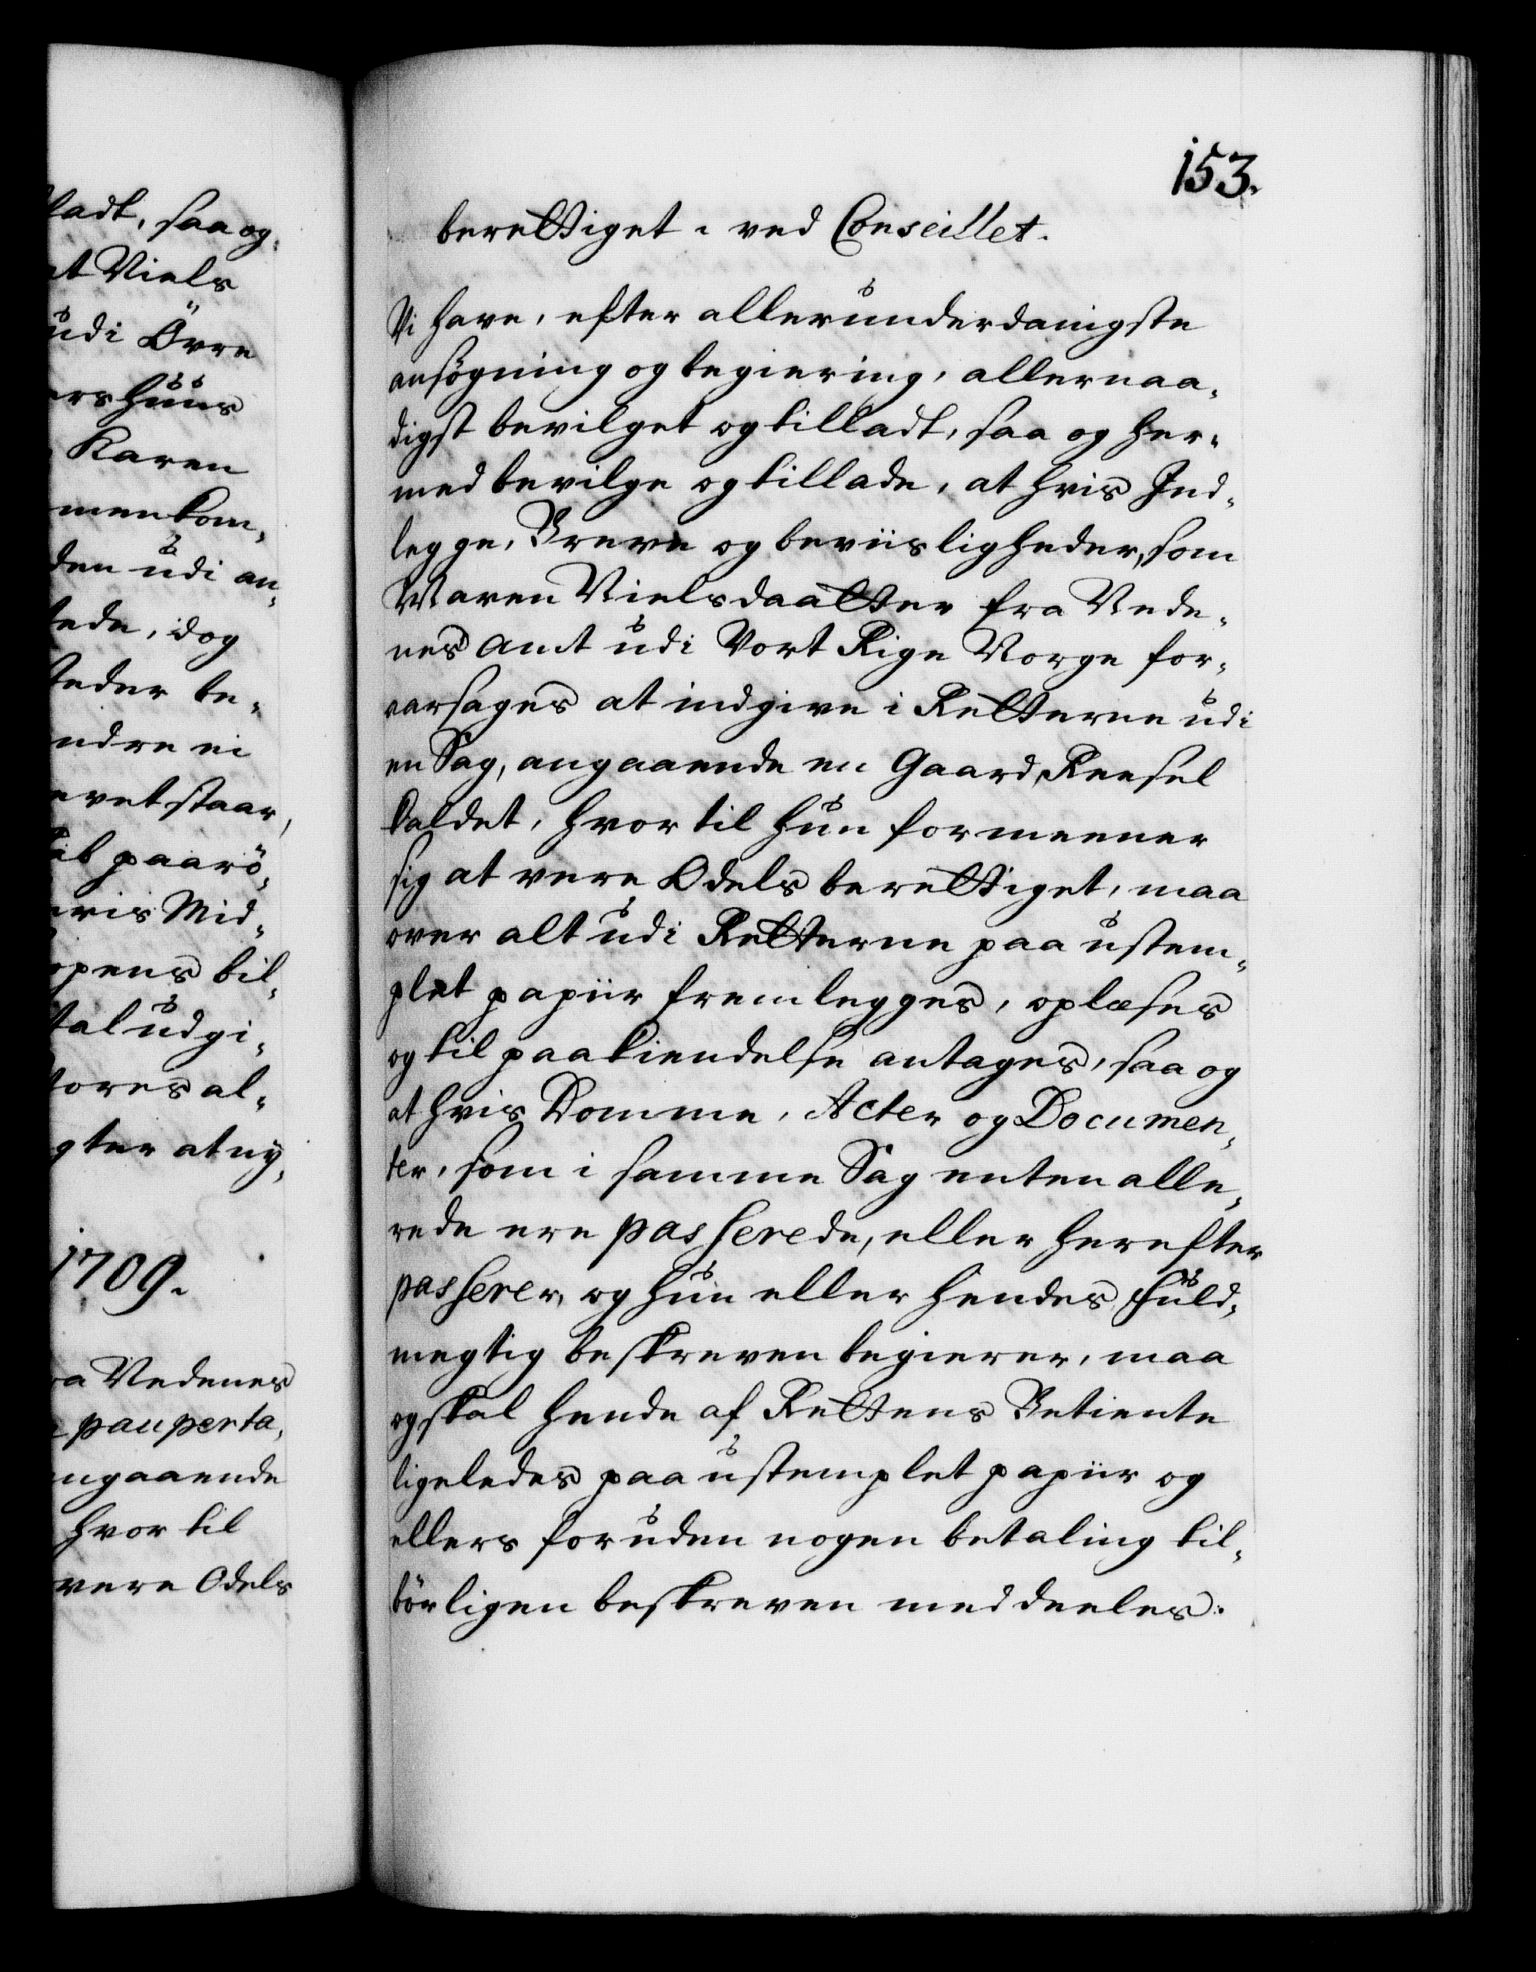 ladt, saa og
at Niels
udi Övre
ershuus
Karen
menkom-
den udi an-
stede, dog
steder be-
endre ei
evet staar,
paarö-
Mid-
til-
udgi-
al-
at ny-
1709.
ra Nedenes
pauperta-
angaaende
hvor til
vere Odels
153.
berettiget. ved Conseillet.
Vi have, efter allerunderdanigste
ansögning og begiering, allernaa-
digst bevilget og tilladt, saa og her-
med bevilge og tillade, at hvis Ind-
legge, Breve og beviisligheder, som
Maren Nielsdaatter fra Nede-
nes Amt udi Vort Rige Norge for-
aarsages at indgive i Retterne udi
en Sag, angaaende en Gaard, Reesel
kaldet, hvor til hun formeener
sig at vere Odels berettiget, maa
over alt udi Retterne paa ustem-
plet papiir fremlegges, oplæses
og til paakiendelse antages, saa og
at hvis Domme, Acter og Documen-
ter, som i samme Sag enten alle-
rede ere passerede, eller herefter
passerer, og hun eller hendes fuld-
megtig beskreven begierer, maa
og skal hende af Rettens Betiente
ligeledes paa ustemplet papiir og
ellers foruden nogen betaling til-
börligen beskreven meddeeles.